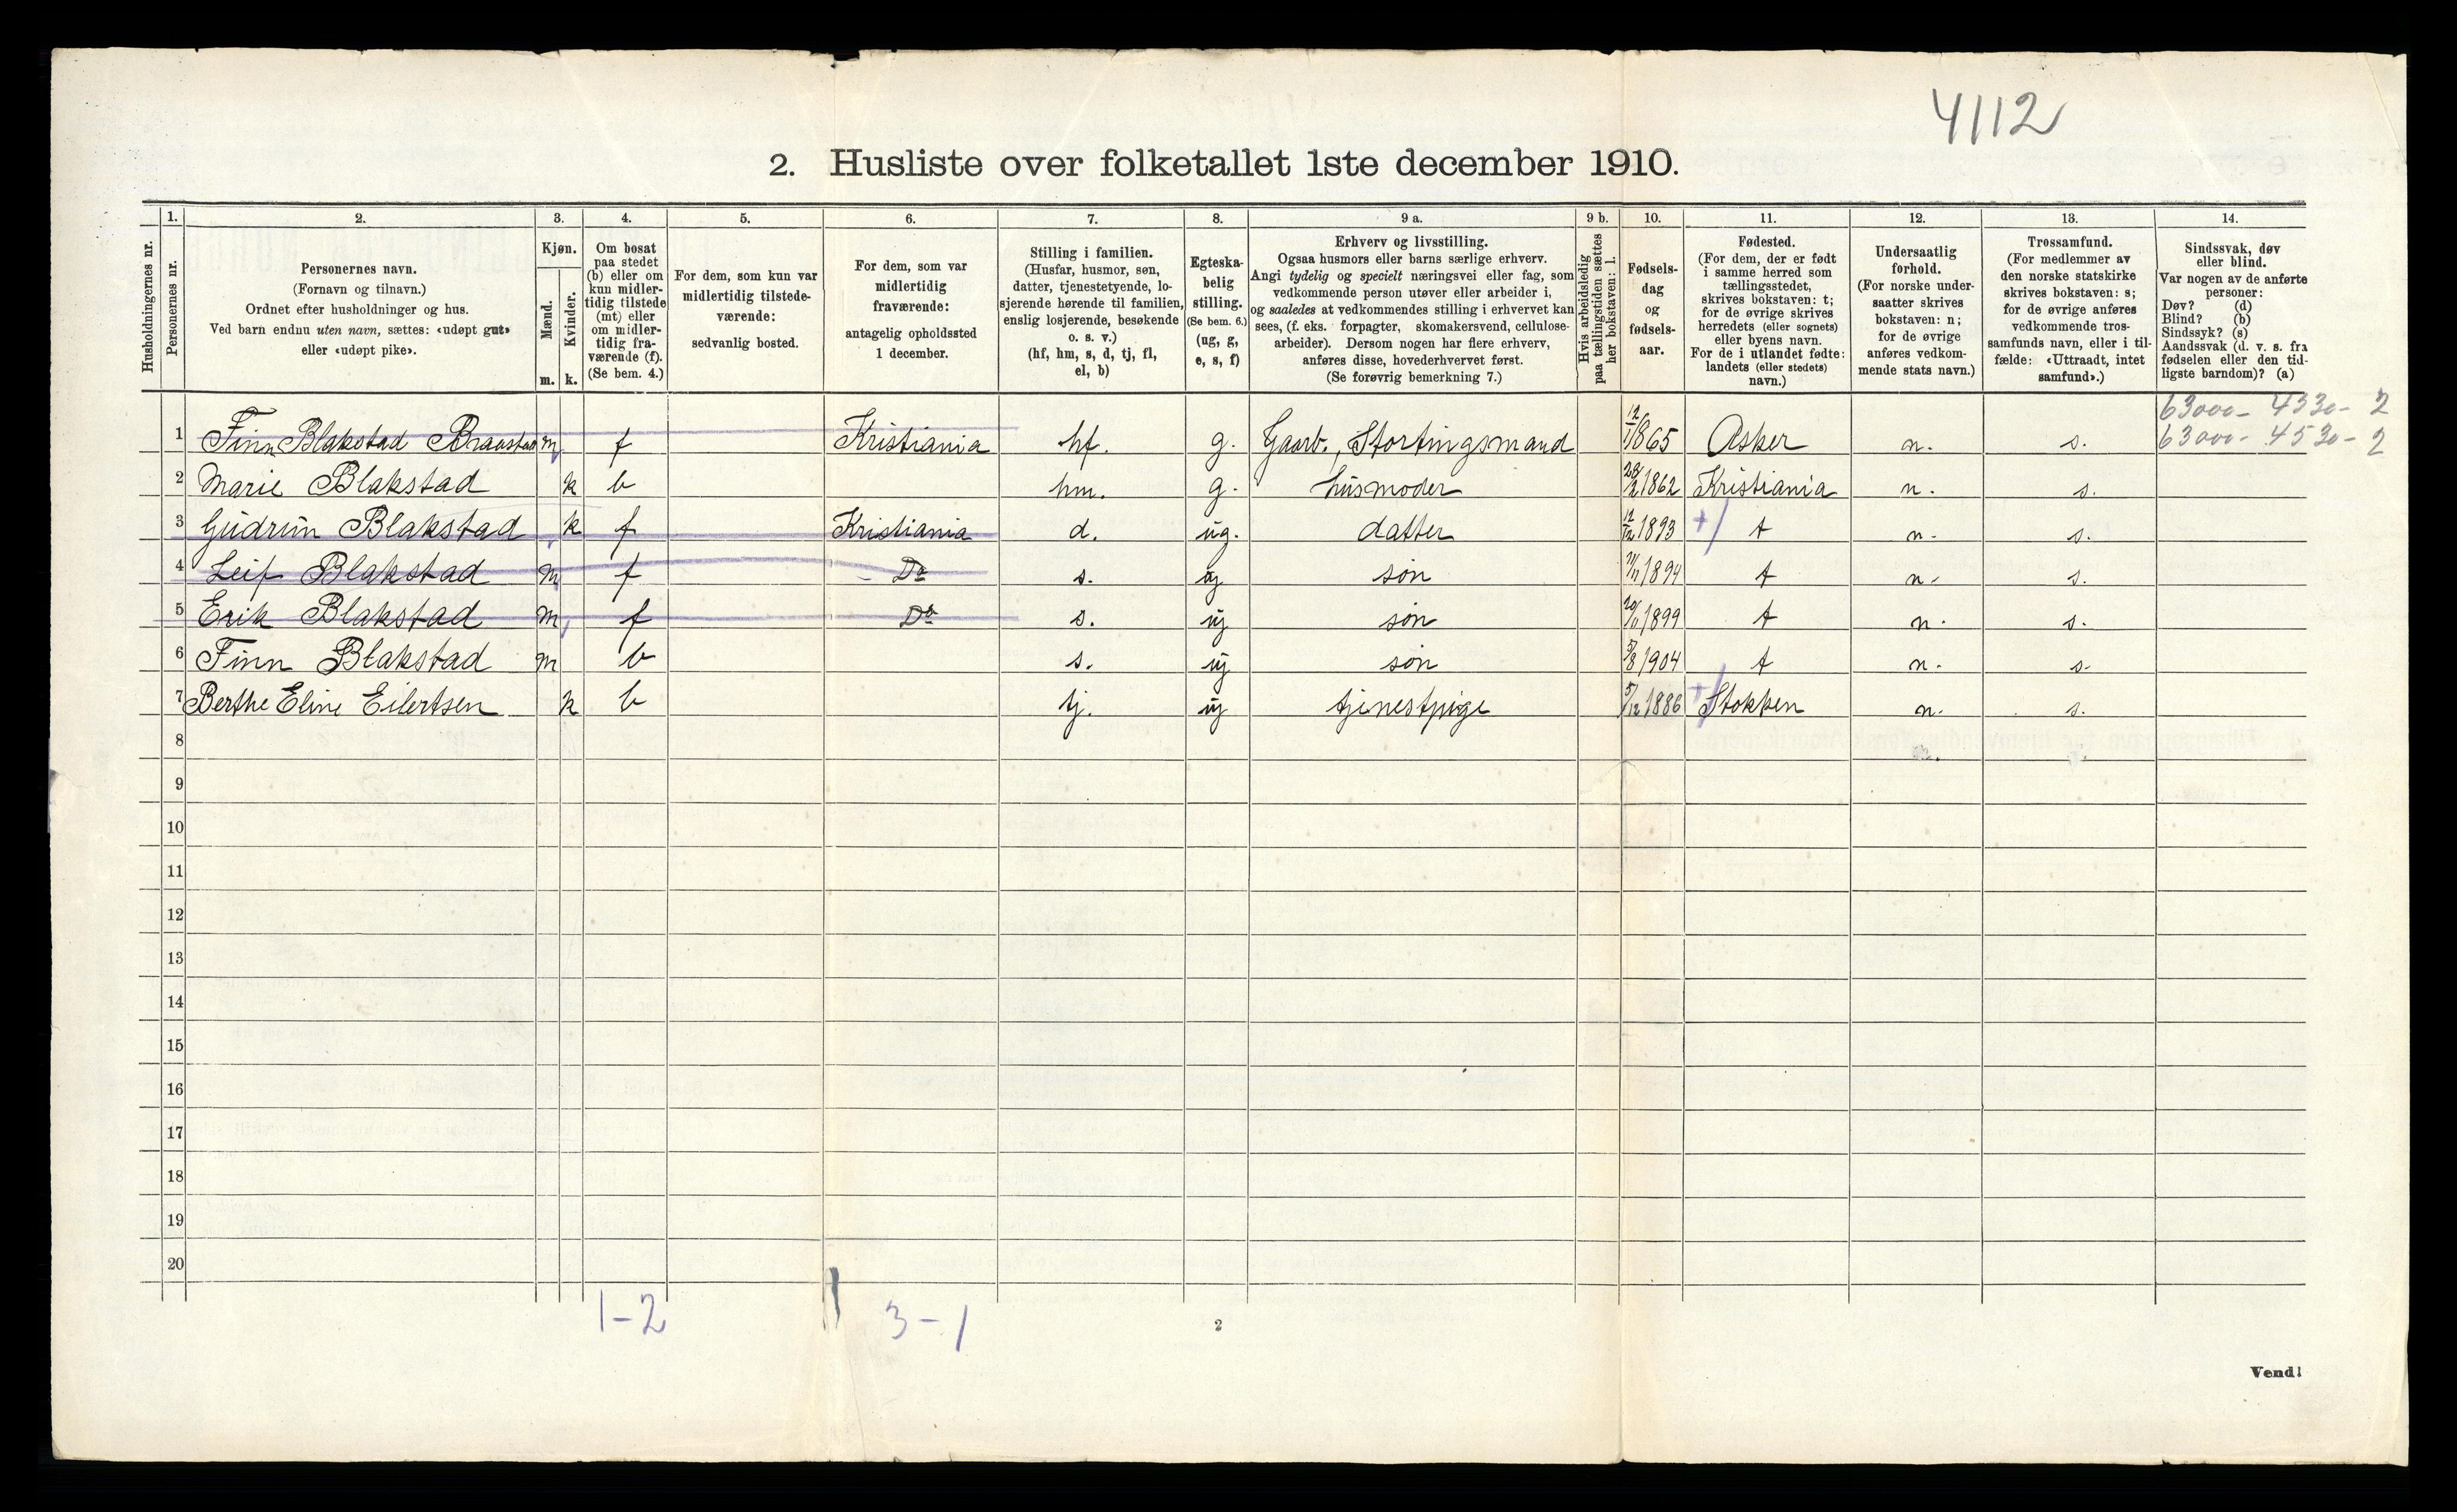 4112
2. Husliste over folketallet 1ste december 1910.
Husholdningernes nr.
1. Personernes nr.
2. Personernes navn.
(Fornavn og tilnavn.)
Ordnet efter husholdninger og hus.
Ved barn endnu uten navn, sættes: «udøpt gut»
eller «udøpt pike».
3. Kjøn.
Mænd. m.
Kvinder. k.
4. Om bosat
paa stedet
(b) eller om
kun midler-
tidig tilstede
(mt) eller
om midler-
tidig fra-
værende (f).
(Se bem. 4.)
5. For dem, som kun var
midlertidig tilstede-
værende:
sedvanlig bosted.
6. For dem, som var
midlertidig
fraværende:
antagelig opholdssted
1 december.
7. Stilling i familien.
(Husfar, husmor, søn,
datter, tjenestetyende, lo-
sjerende hørende til familien,
enslig losjerende, besøkende
o. s. v.)
(hf, hm, s, d, tj, fl,
el, b)
8. Egteska-
belig
stilling.
(Se bem. 6.)
(ug, g,
e, s, f)
9 a. Erhverv og livsstilling.
Ogsaa husmors eller barns særlige erhverv.
Angi tydelig og specielt næringsvei eller fag, som
vedkommende person utøver eller arbeider i,
og saaledes at vedkommendes stilling i erhvervet kan
sees, (f. eks. forpagter, skomakersvend, cellulose-
arbeider). Dersom nogen har flere erhverv,
anføres disse, hovederhvervet først.
(Se forøvrig bemerkning 7.)
9 b. Hvis arbeidsledig
paa tællingstiden sættes
her bokstaven: l.
10. Fødsels-
dag
og
fødsels-
aar.
11. Fødested.
(For dem, der er født
i samme herred som
tællingsstedet,
skrives bokstaven: t;
for de øvrige skrives
herredets (eller sognets)
eller byens navn.
For de i utlandet fødte:
landets (eller stedets)
navn.)
12. Undersaatlig
forhold.
(For norske under-
saatter skrives
bokstaven: n;
for de øvrige
anføres vedkom-
mende stats navn.)
13. Trossamfund.
(For medlemmer av
den norske statskirke
skrives bokstaven: s;
for de øvrige anføres
vedkommende tros-
samfunds navn, eller i til-
fælde: «Uttraadt, intet
samfund».)
14. Sindssvak, døv
eller blind.
Var nogen av de anførte
personer:
Døv? (d)
Blind? (b)
Sindssyk? (s)
Aandssvak (d. v. s. fra
fødselen eller den tid-
ligste barndom)? (a)
63000- 4530- 2
1 Finn Blakstad m f Kristiania hf. g. Gaarb., Stortingsmand 12/1 1865 Asker n. s. 63000- 4530- 2
2 Marie Blakstad k b hm. g. husmoder 28/2 1862 Kristiania n. s.
3 Gudrun Blakstad k f Kristiania d. ug. datter 12/12 1893 t n. s.
4 Leif Blakstad m f Do s. ug søn 11/11 1894 t n. s.
5 Erik Blakstad m f Do s. ug søn 20/11 1899 t n. s.
6 Finn Blakstad m b s. ug søn 3/8 1904 t n. s.
7 Berthe Eline Eilertsen k b tj. ug tjenestpige 5/12 1886 Stokken n. s.
8
9
10
11
12
13
14
15
16
17
18
19
20
1-2 3-1
2
Vend!